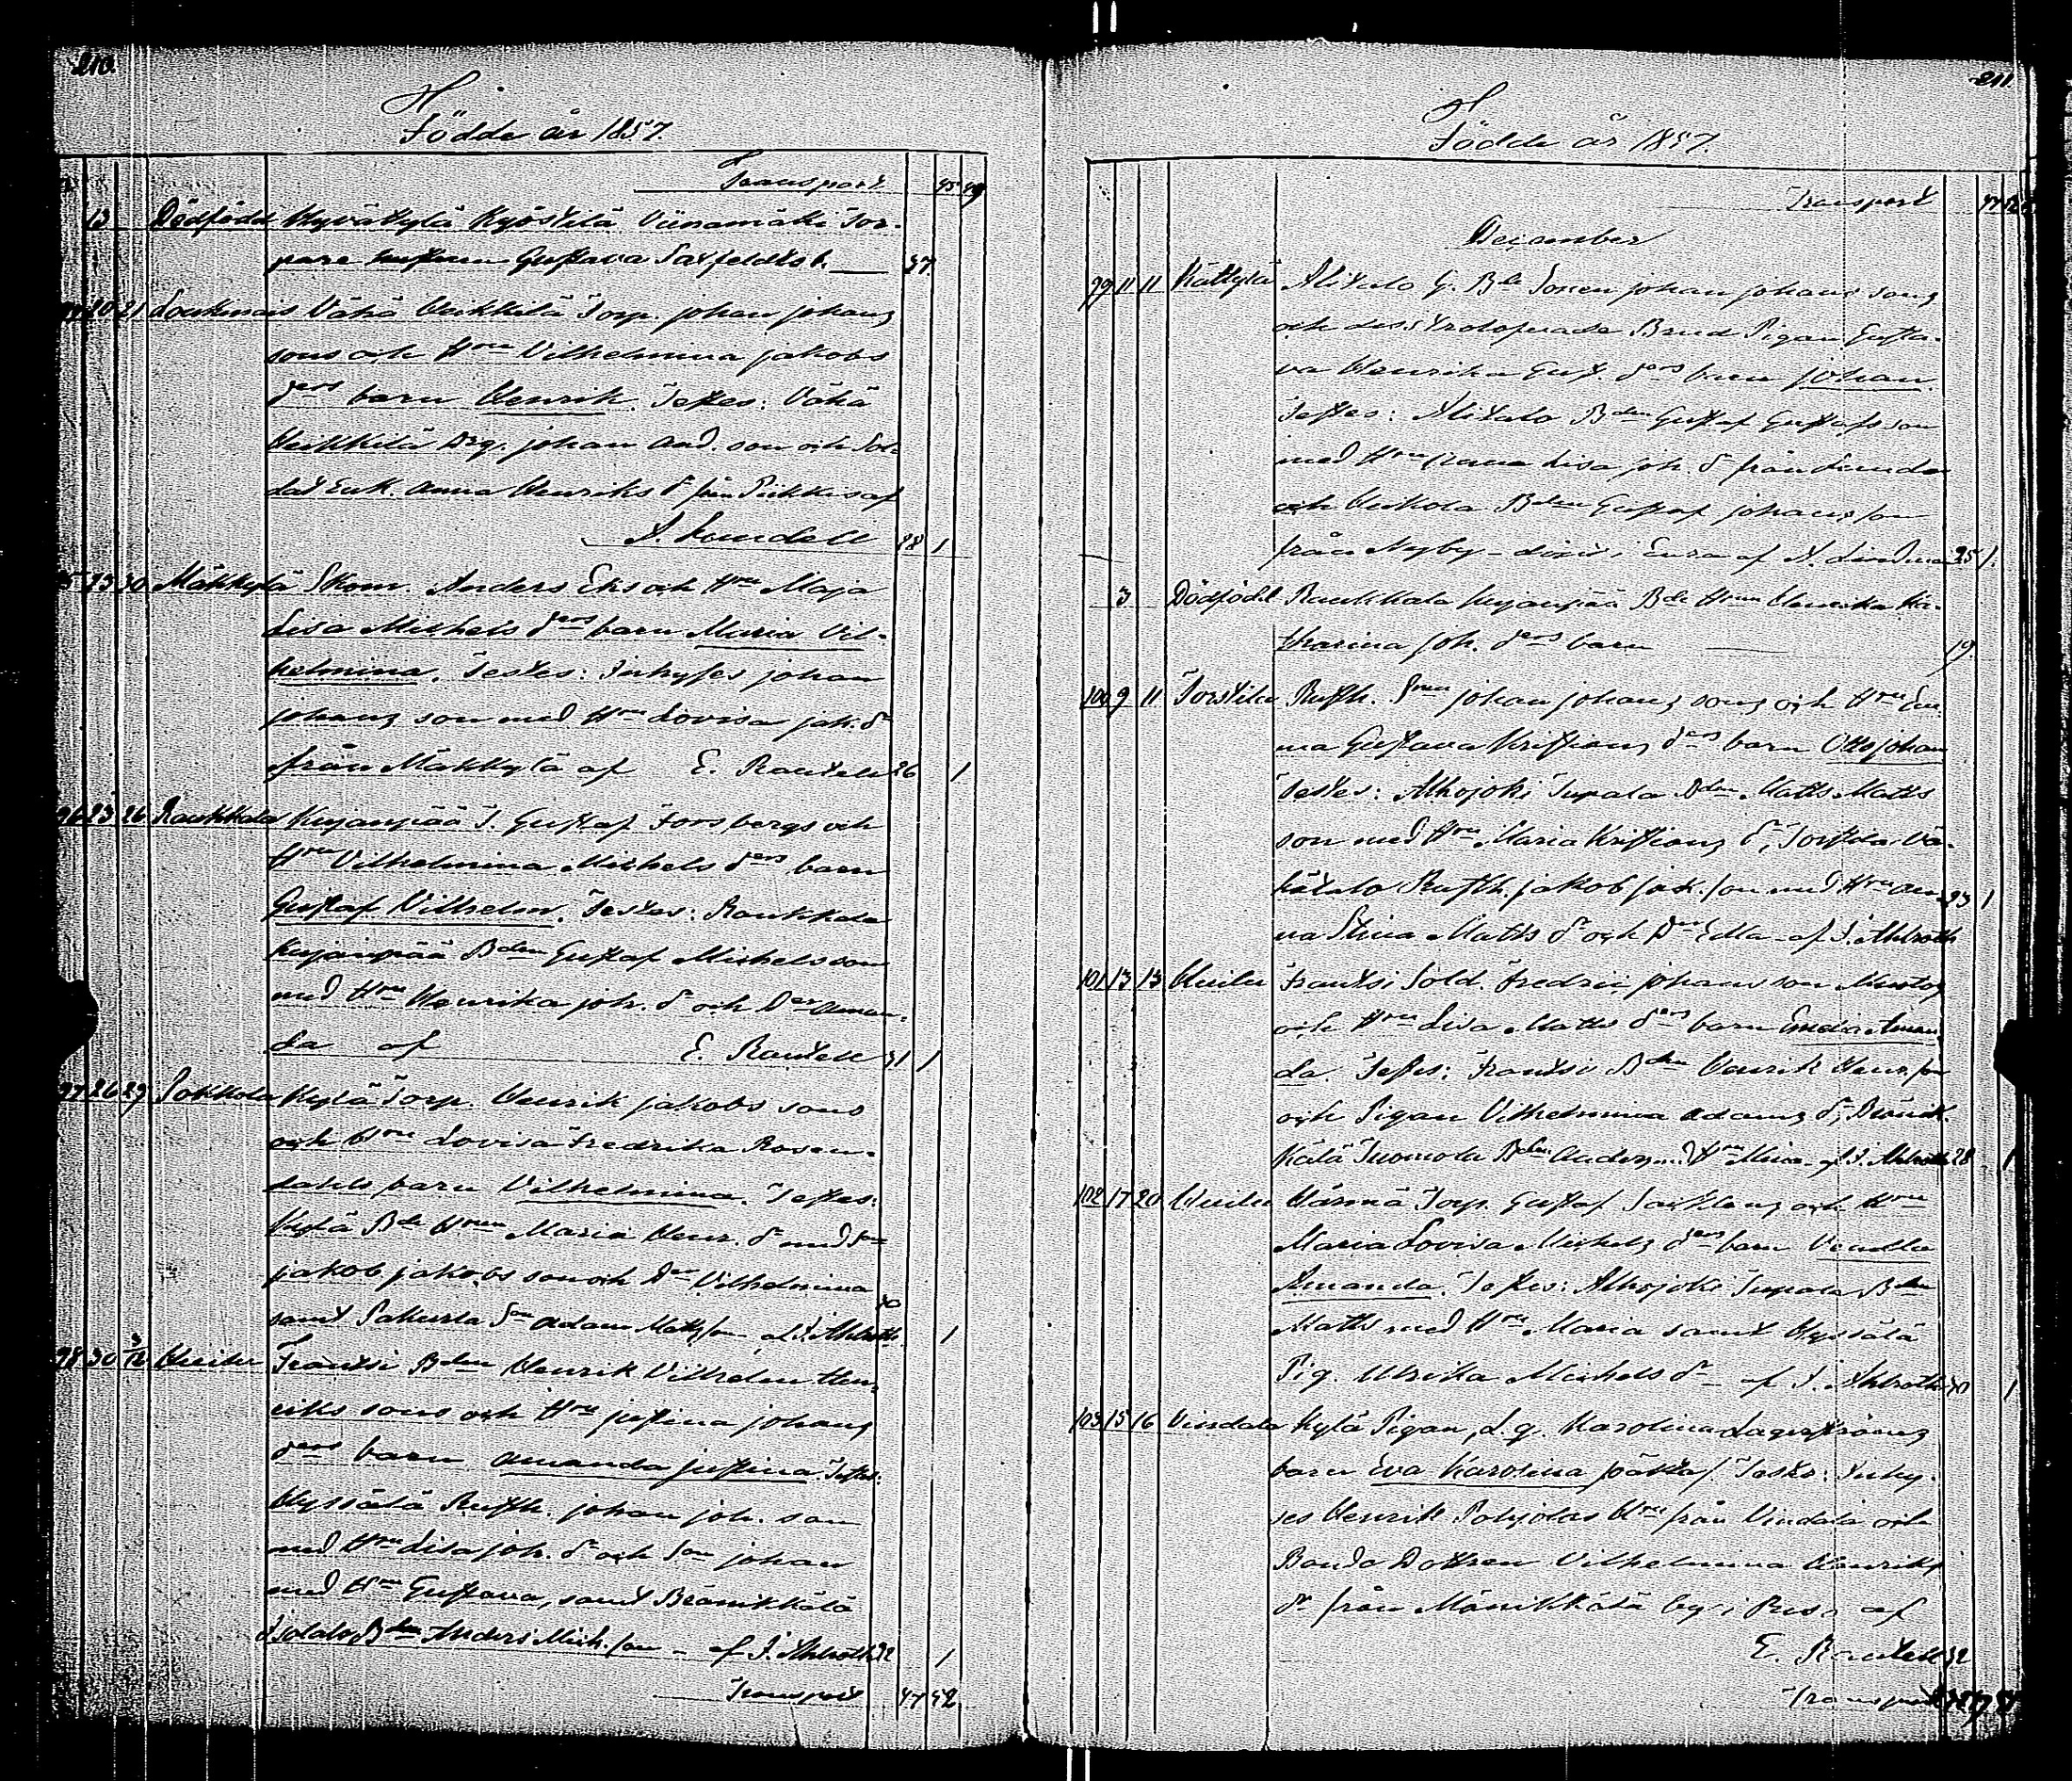 210.
Födde år 1857
Transport 45 49
13 Dödfödd Hyväkylä Kyöstilä Viinamäki Tor-
pare Gustava b. 37
20 21 Loukinais Vähä Heikkilä Torp. Johan Johans
sons och Hru Vilhelmina Jakobs
drs barn Henrik. Testes: Vähä
Heikkilä Drg. Johan And. son och Sol-
dat Enk. Anna Henriks dr från Piikkis af
Lundell 28 1
95 23 30 Mäkkylä Skom. Anders Eks och Hru Maja
Lisa Michels drs barn Maria Vil-
helmina. Testes: Inhyses Johan
Johans son med Hru Lovisa Jak. dr
från Mäkkylä af E. Rautell 26 1
96 23 26 Raukkala Kujanpää T. Gustaf Forsbergs och
Hru Vilhelmina Michels drs barn
Gustaf Vilhelm. Testes: Raukkala
Kujanpää Bden Gustaf Michelsson
med Hru Henrika Joh. dr och Dr Aman-
da af E. Rautell 31 1
97 26 29 Pokkola Kylä Torp. Henrik Jakobs sons
och Hru Lovisa Fredrika Rosen-
dahls barn Vilhelmina. Testes:
Kylä Bde Hrun Maria Henr. dr med Son
Jakob Jakobs son och Dr Vilhelmina
samt Pakurla Son Adam Matsson af J. Ahlroth 1
98 30 2/12 Frantsi Bden Henrik Vilhelm Hen-
riks sons och Hru Justina Johans
drs barn Amanda Justina. Testes:
Hyssälä Rusth. Johan Joh. son
med Hru Lisa Joh. dr och Son Johan
med Hru Gustava, samt Bränikkälä
Isotalo Bden Anders Mich. son – af J. Ahlroth 32 1
Transport 47 52
211.
Födde år 1857.
Transport 47 52
December
99 11 11 Kättylä Alitalo G. Bde Sonen Johan Johans sons
och dess trolofvade Brud Pigan Gusta-
va Henrika Gust. drs barn Johan.
Testes: Alitalo Bden Gustaf Gustafsson
med Hru Anna Lisa Joh. dr från Lunda
och Heikola Bden Gustaf Johansson
från Nyby – döpt i Eura af N. Lindman 25 1
3 Dödfödd Raukkala Kujanpää Bde Hrun Henrika Ka-
tharina Joh. drs barn 19.
100 9 11 Torstila Rusth. Sonen Johan Johans sons och Hru Em-
ma Gustava Kristians drs barn Otto Johan
Testes: Alhojoki Tupala Bden Matts Matts
son med Hru Maria Kristians dr, Torstila Vä-
hätalo Rusth. Jakob Jak. son med Hru An- 23 1
na Stina Matts dr och Dr Edla – af J. Ahlroth
101 13 13 Frantsi Sold. Fredric Johansson
och Hru Lisa Matts drs barn Emelia Aman-
da. Testes: Frantsi Bden Henrik Henr. son
och Pigan Vilhelmina Adams dr, Bränik-
kälä Tuomola Bden Anders med Hru Mina – af J. Ahlroth 28 1
102 17 20 Härmä Torp. Gustaf och Hru
Maria Lovisa Michels drs barn Vendla
Amanda. Testes: Alhojoki Tupala Bden
Matts med Hru Maria samt Hyssälä
Pig. Ulrika Michels dr – af J. Ahlroth 1
103 15 16 Vindala Kylä Pigan, L. q. Karolina Lagerströms
barn Eva Karolina [oäkta]. Testes: Inhy-
ses Henrik Pohjolas Hru från Vindala och
Bonde Dottren Vilhelmina Henriks
dr från Mänikkälä by i Pusa af
E. Rautell 32
Transport